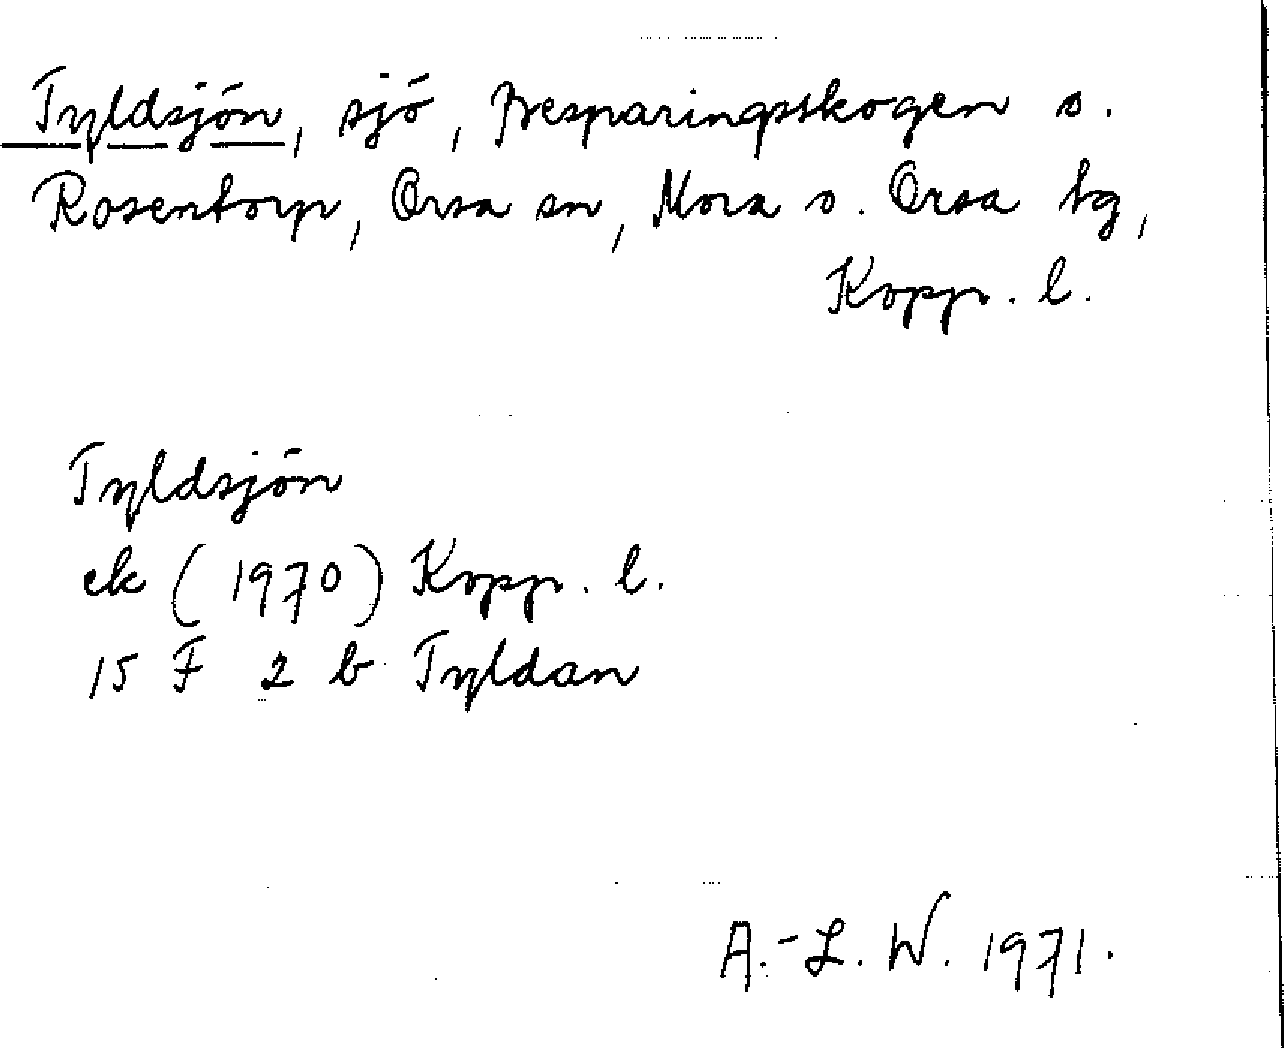 Tyldsjön, sjö, Besparingsskogen o.
Rosentorp, Orsa sn, Mora o. Orsa tg,
Kopp. l.
Tyldsjön
ek (1970) Kopp. l.
15 F 2 b Tyldan
A.-L. W. 1971.